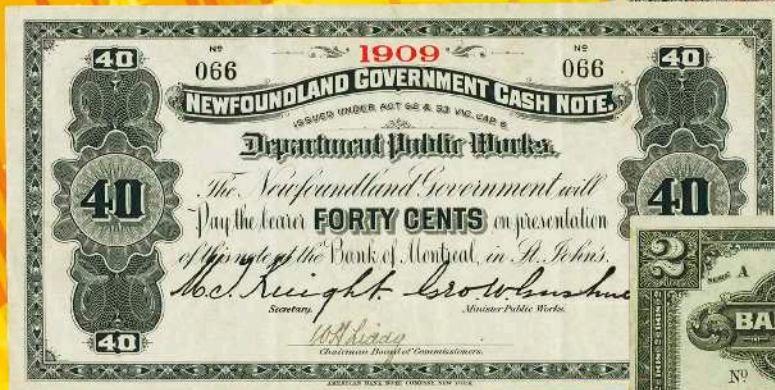 40 Nº 1909 Nº 40
066 066
NEWFOUNDLAND GOVERNMENT CASH NOTE.
ISSUED UNDER ACT 52 & 53 VIC. CAP. 6
Department Public Works.
The Newfoundland Government will
40 Pay the bearer FORTY CENTS on presentation 40
of this note at the Bank of Montreal, in St. John's.
Secretary. Minister Public Works.
Chairman Board of Commissioners.
40
AMERICAN BANK NOTE COMPANY, NEW YORK
2
A
BA
Nº